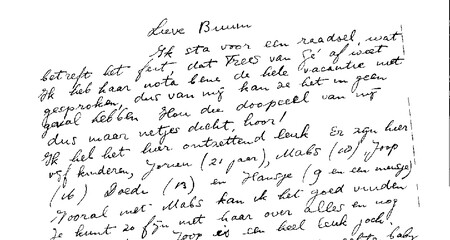 Lieve Buum
Ik sta voor een raadsel, wat
betreft het feit, dat Trees van Gé af weet
Ik heb haar nota bene de hele vacantie niet
gesproken, dus van mij kan ze het in geen
geval hebben Hou die doopceel van mij
dus maar netjes dicht, hoor!
Ik heb het hier ontzettend leuk Er zijn hier
vijf kinderen, Jorien (21 jaar), Mabs (18) Joop
(16) Doedi (13) en Hansje (9 en een meisje)
Vooral met Mabs kan ik het goed vinden
Je kunt zo fijn met haar over alles en nog
Joop is een heel leuk joch.
baby